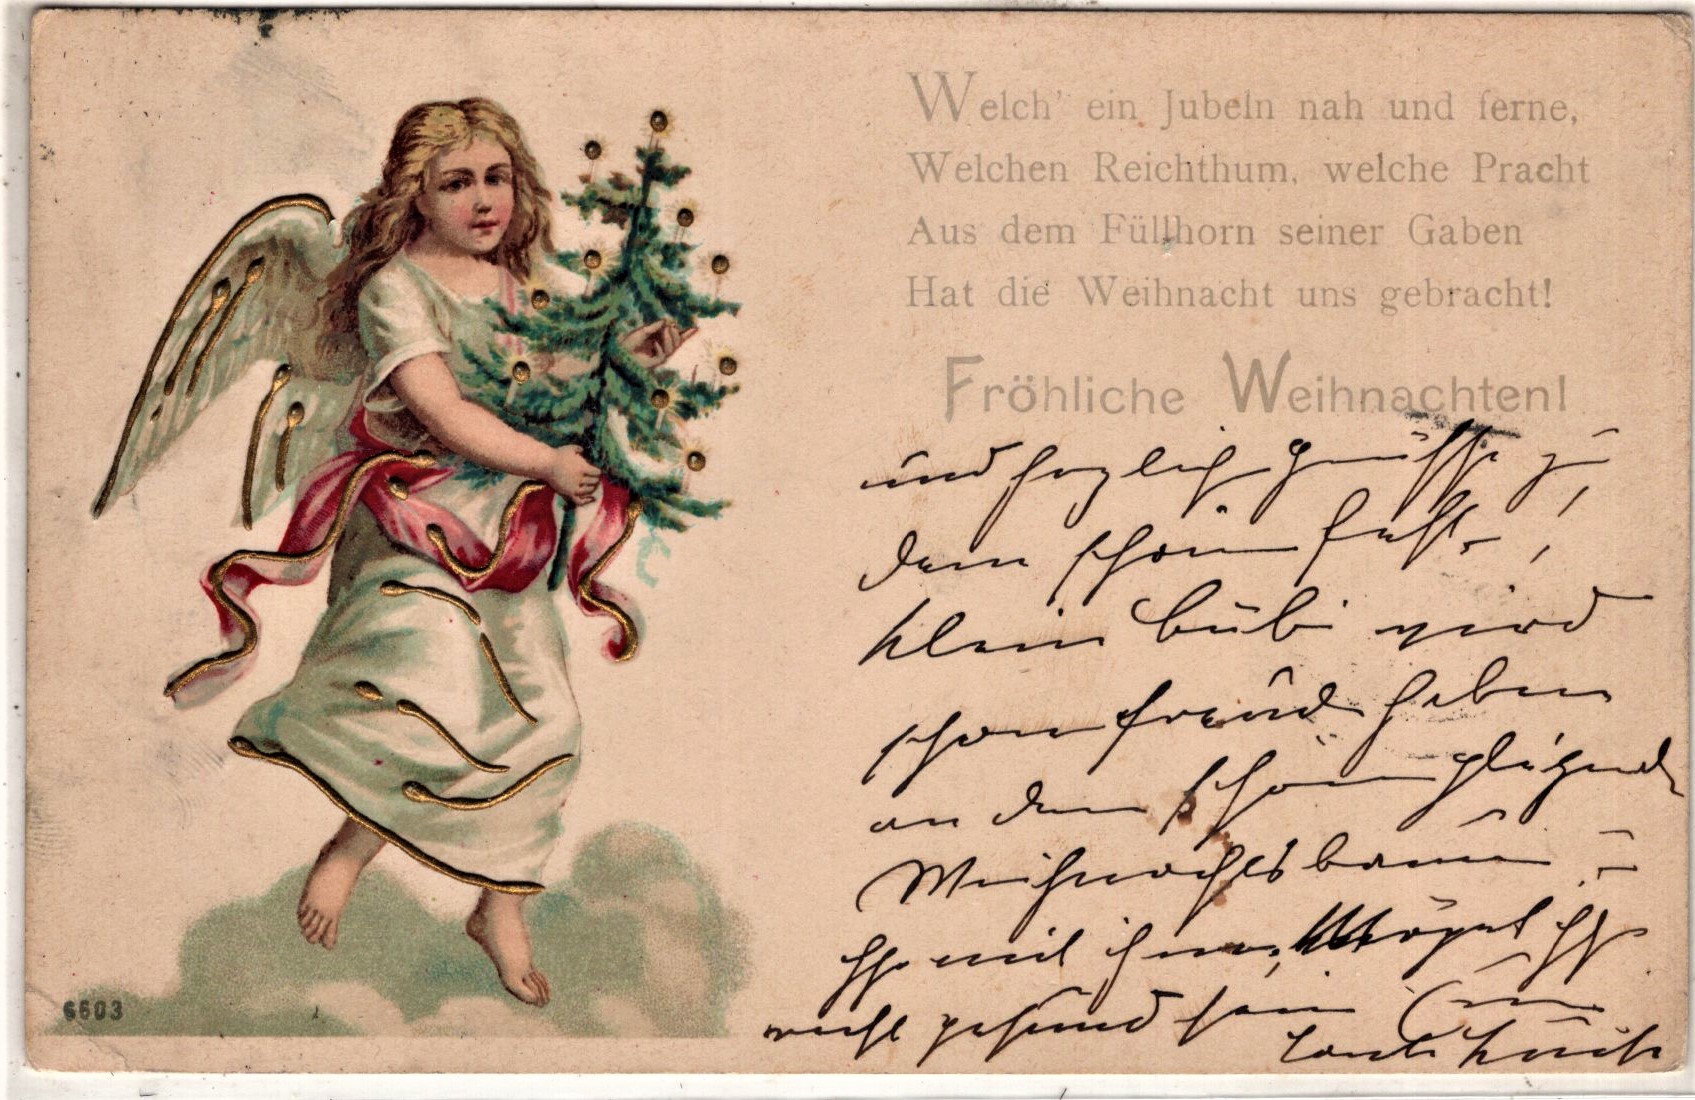 Welch' ein Jubeln nah und ferne,
Welchen Reichthum, welche Pracht
Aus dem Füllhorn seiner Gaben
Hat die Weihnacht uns gebracht!
Fröhliche Weihnachten!
und herzlich Grüße zu
dem schönen Fest.
klein Bubi wird
schon Freude haben
an dem schönen glitzende
Weihnachtsbaum
mit ihm, Möget Ihr
recht gesund sein
6603